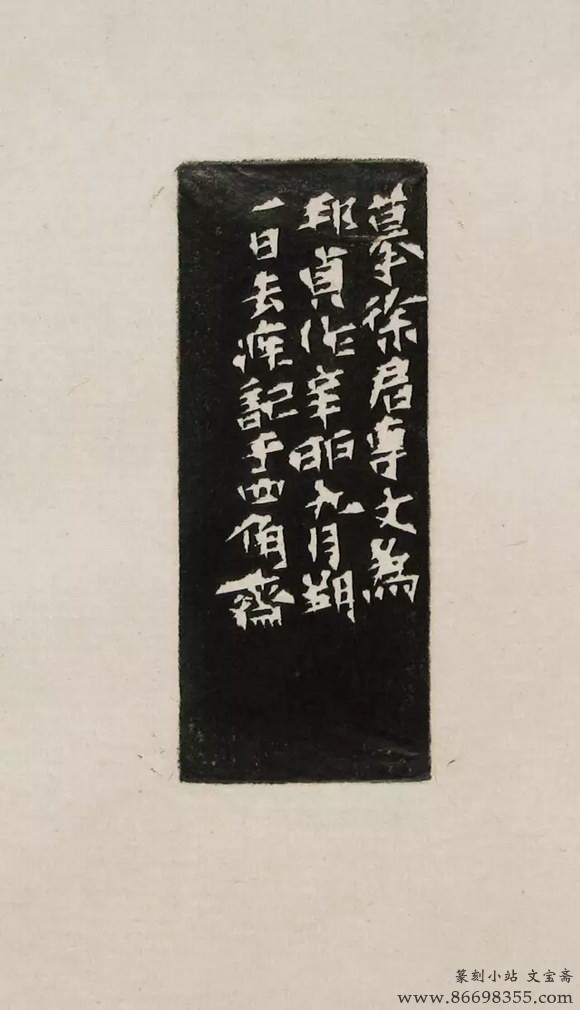 摹徐君專文為
邱貞作辛卯九月朔
一日去疾記于四角齋
篆刻小站 文宝斋
www.86698355.com